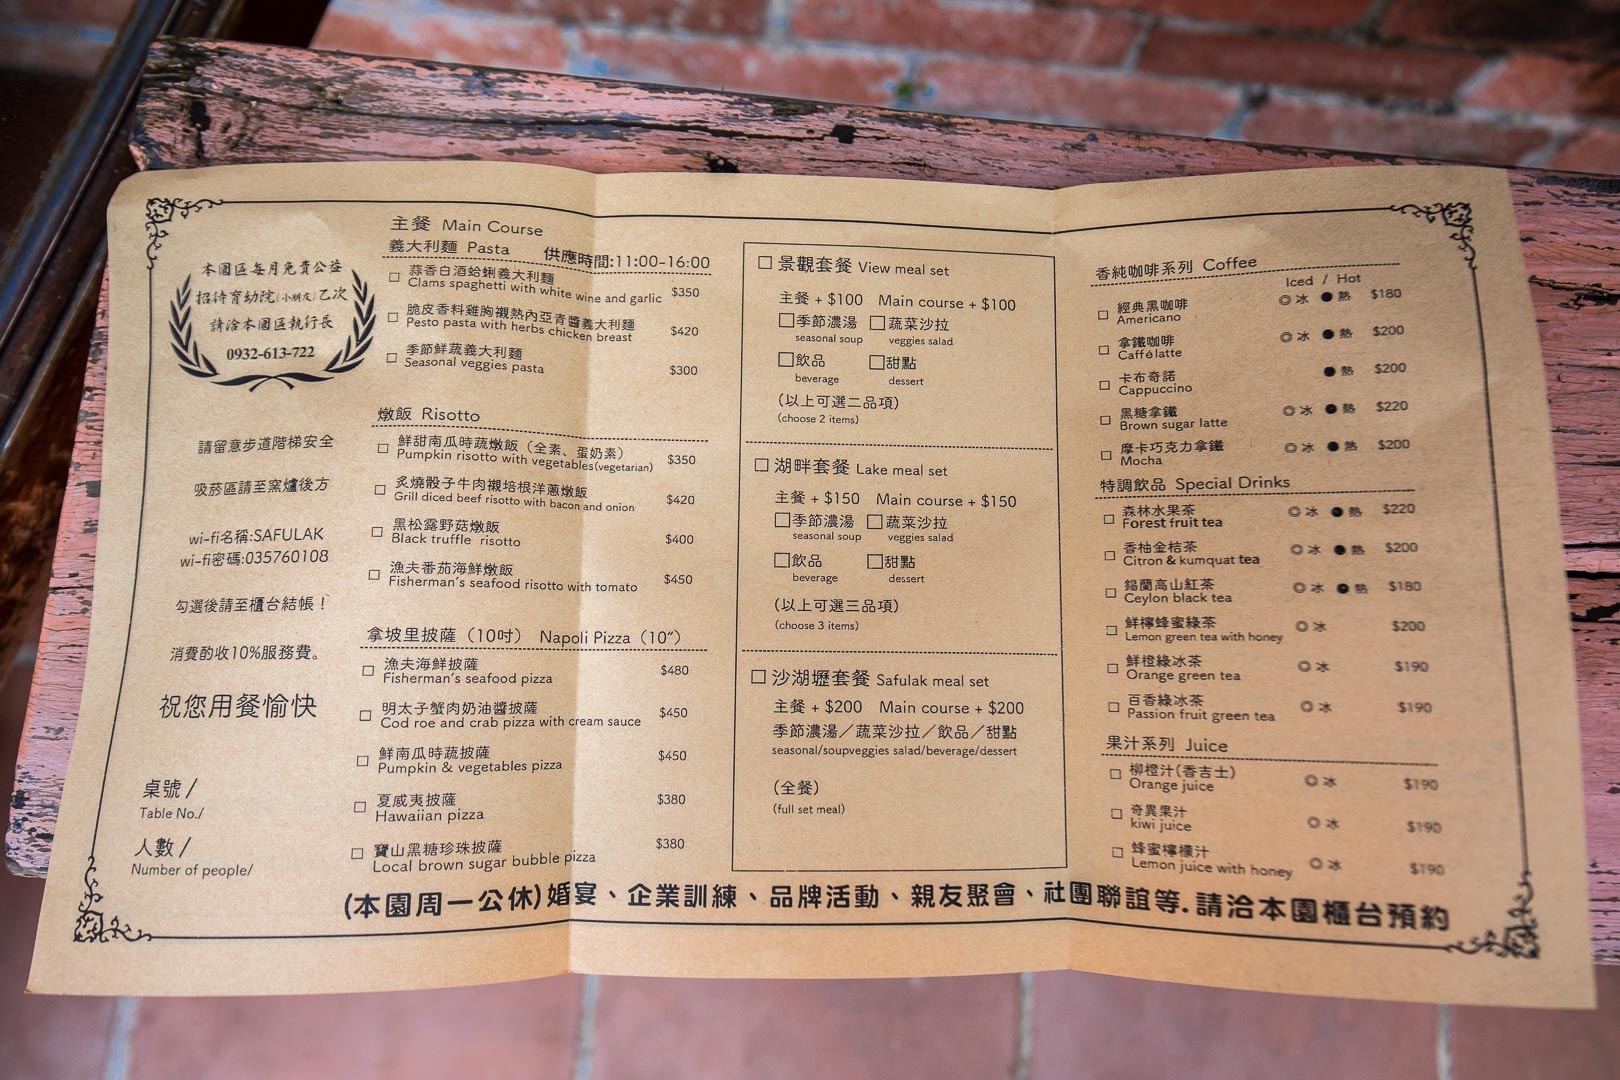 本園區每月免費公益
招待育幼院(小朋友)乙次
請洽本園區執行長
0932-613-722
請留意步道階梯安全
吸菸區請至窯爐後方
wi-fi名稱:SAFULAK
wi-fi密碼:035760108
勾選後請至櫃台結帳！
消費酌收10%服務費。
祝您用餐愉快
桌號 /
Table No./
人數 /
Number of people/
主餐 Main Course
義大利麵 Pasta 供應時間:11:00-16:00
□ 蒜香白酒蛤蜊義大利麵
Clams spaghetti with white wine and garlic $350
□ 脆皮香料雞胸襯熱內亞青醬義大利麵
Pesto pasta with herbs chicken breast $420
□ 季節鮮蔬義大利麵
Seasonal veggies pasta $300
燉飯 Risotto
□ 鮮甜南瓜時蔬燉飯（全素、蛋奶素）
Pumpkin risotto with vegetables(vegetarian) $350
□ 炙燒骰子牛肉襯培根洋蔥燉飯
Grill diced beef risotto with bacon and onion $420
□ 黑松露野菇燉飯
Black truffle risotto $400
□ 漁夫番茄海鮮燉飯
Fisherman's seafood risotto with tomato $450
拿坡里披薩（10吋） Napoli Pizza（10"）
□ 漁夫海鮮披薩
Fisherman's seafood pizza $480
□ 明太子蟹肉奶油醬披薩
Cod roe and crab pizza with cream sauce $450
□ 鮮南瓜時蔬披薩
Pumpkin & vegetables pizza $450
□ 夏威夷披薩
Hawaiian pizza $380
□ 寶山黑糖珍珠披薩
Local brown sugar bubble pizza $380
□ 景觀套餐 View meal set
主餐 + $100 Main course + $100
□季節濃湯 □蔬菜沙拉
seasonal soup veggies salad
□飲品 □甜點
beverage dessert
（以上可選二品項）
(choose 2 items)
□ 湖畔套餐 Lake meal set
主餐 + $150 Main course + $150
□季節濃湯 □蔬菜沙拉
seasonal soup veggies salad
□飲品 □甜點
beverage dessert
（以上可選三品項）
(choose 3 items)
□ 沙湖壢套餐 Safulak meal set
主餐 + $200 Main course + $200
季節濃湯／蔬菜沙拉／飲品／甜點
seasonal/soupveggies salad/beverage/dessert
（全餐）
(full set meal)
香純咖啡系列 Coffee
Iced / Hot
□ 經典黑咖啡 ◎ 冰 ● 熱 $180
Americano
□ 拿鐵咖啡 ◎ 冰 ● 熱 $200
Caffé latte
□ 卡布奇諾 ● 熱 $200
Cappuccino
□ 黑糖拿鐵 ◎ 冰 ● 熱 $220
Brown sugar latte
□ 摩卡巧克力拿鐵 ◎ 冰 ● 熱 $200
Mocha
特調飲品 Special Drinks
□ 森林水果茶 ◎ 冰 ● 熱 $220
Forest fruit tea
□ 香柚金桔茶 ◎ 冰 ● 熱 $200
Citron & kumquat tea
□ 錫蘭高山紅茶 ◎ 冰 ● 熱 $180
Ceylon black tea
□ 鮮檸蜂蜜綠茶 ◎ 冰 $200
Lemon green tea with honey
□ 鮮橙綠冰茶 ◎ 冰 $190
Orange green tea
□ 百香綠冰茶 ◎ 冰 $190
Passion fruit green tea
果汁系列 Juice
□ 柳橙汁(香吉士) ◎ 冰 $190
Orange juice
□ 奇異果汁 ◎ 冰 $190
kiwi juice
□ 蜂蜜檸檬汁 ◎ 冰 $190
Lemon juice with honey
(本園周一公休)婚宴、企業訓練、品牌活動、親友聚會、社團聯誼等.請洽本園櫃台預約